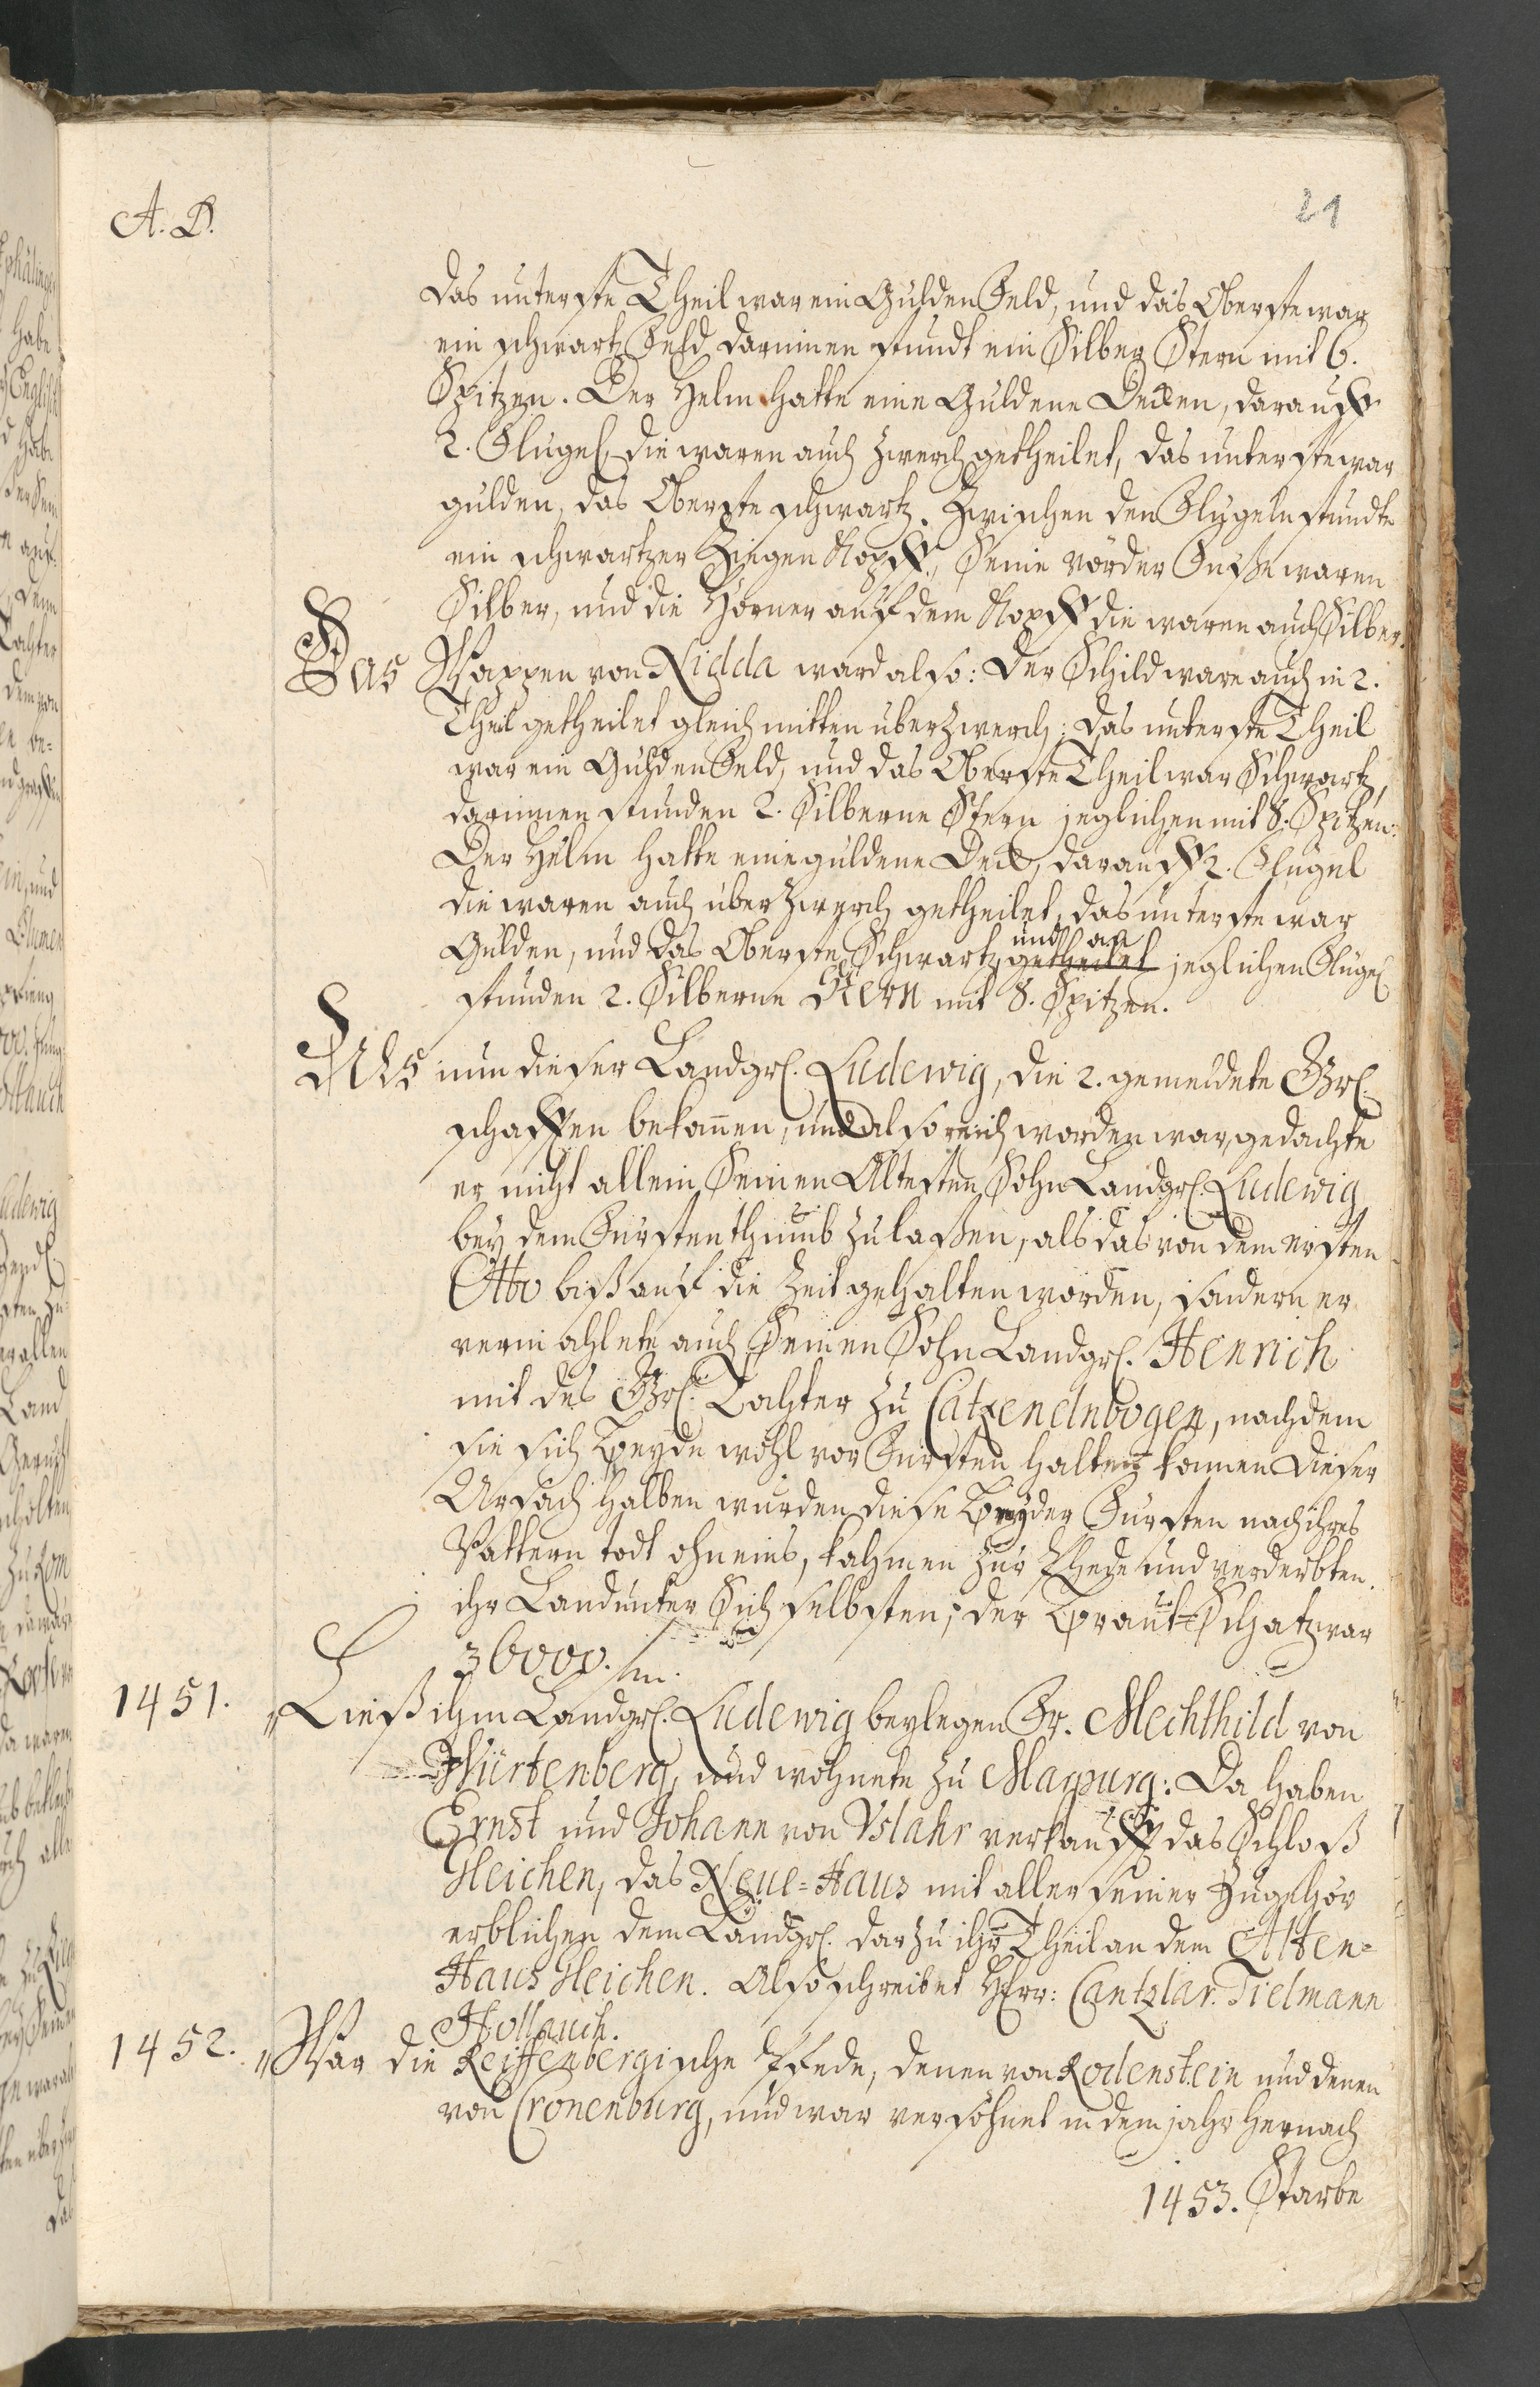 A. D.
21
das unterste Theil war ein Gulden Feld, und das Oberste war
ein schwartz Feld darinnen stundt ein Silber Stern mit 6.
Spitzen. Der Helm hatte eine Guldene Decken, darauff
2. Flugel, die waren auch zwerch getheilet, das unterste war
gulden, das Oberste schwartz. Zwischen den Flugeln stundte
ein schwartzer Ziegen Kopff, Seine vörder Fuße waren
Silber, und die Hörner auf dem Kopff die waren auch Silber.
Das Wappen von Nidda ward also: Der Schild ware auch in 2.
Theil getheilet gleich mitten uberzwerch; das unterste Theil
war ein Gulden Feld, und das Oberste Theil war Schwartz,
darinnen stunden 2. Silberne Stern jeglichen mit 8. Spitzen.
Der Helm hatte eine guldene Deck, darauff 2. Flugel
die waren auch uberzwerch getheilet, das unterste war
und an
Gulden, und das Oberste Schwartz, getheilet jeglichen Flugel
stunden 2. Silberne Stern mit 8. Spitzen.
Als nun dieser Landgrf. Ludewig, die 2. gemeldete Grf.
schafften bekamen, und also reich worden war, gedachte
er nicht allein Seinen Altesten Sohn Landgrf. Ludewig
bey dem Furstenthumb zu laßen, als das von dem ersten
Otto biß auf die Zeit gehalten worden, sondern er
vermahlete auch Seinen Sohn Landgrf. Henrich
mit des Grf. Tochter zu Catzenelnbogen, nachdem
sie sich Beyde wohl vor Fursten halten konnen dieser
Ursach halben wurden diese Beyder Fursten nach ihres
Vattern todt ohneins, kahmen zur Phede und verderbten
ihr Land unter Sich selbsten; der Braut-Schatz war
36000. fm.
1451. „Ließ ihm Landgrf. Ludewig beylegen Fr. Mechthild von
Würtenberg, und wohnete zu Marpurg: Da haben
Ernst und Johann von Vslahr verkaufft das Schloß
Gleichen, das Neue-Haus mit aller seiner Zugehör
erblichen dem Landgrf. darzu ihr Theil an dem Alten-
Haus Gleichen. Also schreibet Herr: Cantzlar. Tielmann
Hollauch.
1452. „War die Reiffenbergische Pfede, denen von Rodenstein und denen
von Cronenburg, und war versöhnet in dem jahr hernach
1453. Starbe